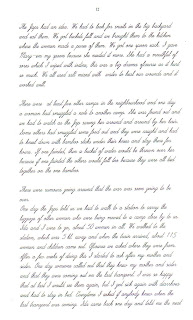 12
The Jiges had an idea. We had to look for snails in the big backyard
and eat them. We got buckets full and we brought them to the kitchen
where the women made a puree of them. We got one spoon each. I gave
Mary-Ann my spoon because she needed it more. She had a mouthful of
sores which I wiped with iodine, this was a big drama afterwards as it hurt
so much. We all used salt mixed with iodine to heal our wounds and it
worked well.
There were at least four other camps in the neighbourhood and one day
a woman had smuggled a note to another camp. She was found out and
we had to watch as the Japs swung her around and around by her hair.
Some others had smuggled some food out and they were caught and had
to kneel down with bamboo sticks under their knees and stay there for
hours. If one fainted, then a bucket of water would be thrown over her
because if one fainted the others would fall too because they were all tied
together on the one bamboo.
There were rumours going around that the war was soon going to be
over.
One day the Japs told us we had to walk to a station to carry the
luggage of other women who were being moved to a camp close by to us.
Ada and I were to go, about 50 women in all. We walked to the
station, which was 5 kl away and when the train arrived, about 115
women and children came out. Of course we asked where they came from.
After a few weeks of doing this I decided to ask after my mother and
sister. One day someone called out that they knew my mother and sister
and that they were coming out on the last transport. I was so happy
that at last I would see them again, but I got sick again with diarrhoea
and had to stay in bed. Everytime I asked if anybody knew when the
last transport was coming. Ada came back one day and told me she met